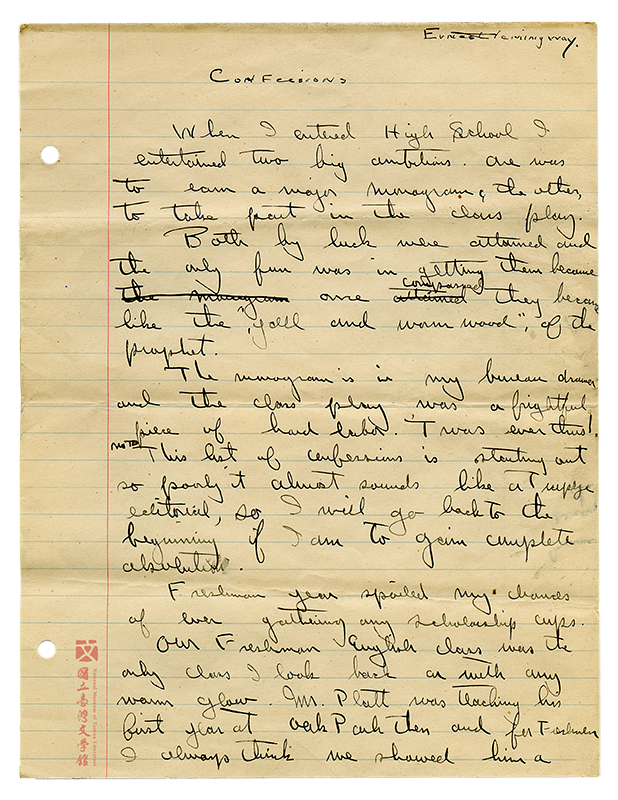 Ernest Hemingway.
Confessions
When I entered High School I
entertained two big ambitions. One was
to earn a major monogram & the other,
to take part in the class play.
Both by luck were attained and
the only fun was in getting them because
conquered
the monogram once attained they became
like the "gall and wormwood", of the
prophet.
The monogram is in my bureau drawer
and the class play was a frightful
piece of hard labor. 'Twas ever thus!
no ¶
This list of confessions is starting out
so poorly it almost sounds like a
editorial, so I will go back to the
beginning if I am to gain complete
absolution.
Freshman year spoiled my chances
of ever gathering any scholarship cups.
Our Freshman English class was the
only class I look back on with any
warm glow. Mr. Platt was teaching his
first year at Oak Park then and for Freshmen
I always think we showed him a
國立臺灣文學館
National Museum of Taiwan Literature